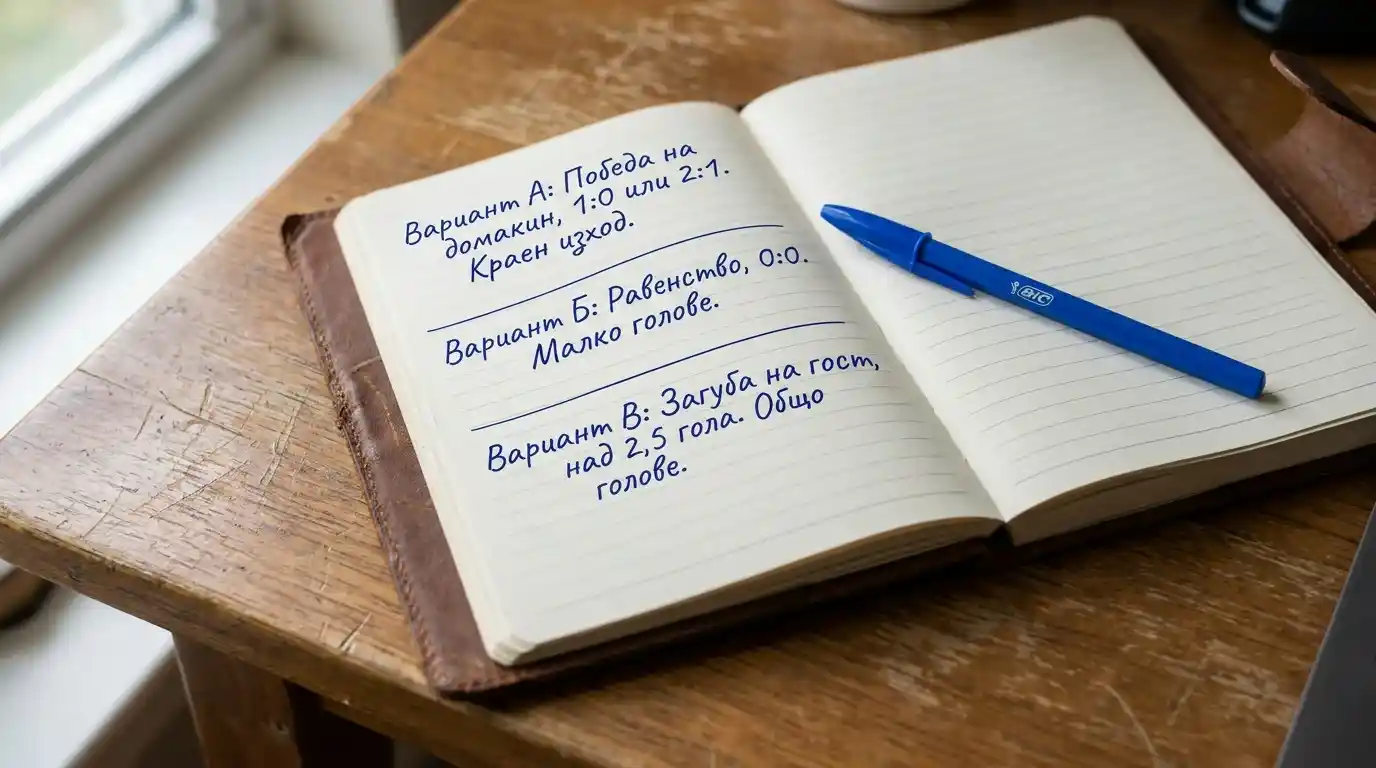 Вариант А: Победа на
домакин, 1:0 или 2:1.
Краен изход.
Вариант Б: Равенство, 0:0.
Малко голове.
Вариант В: Загуба на гост,
над 2,5 гола. Общо
голове.
BIC